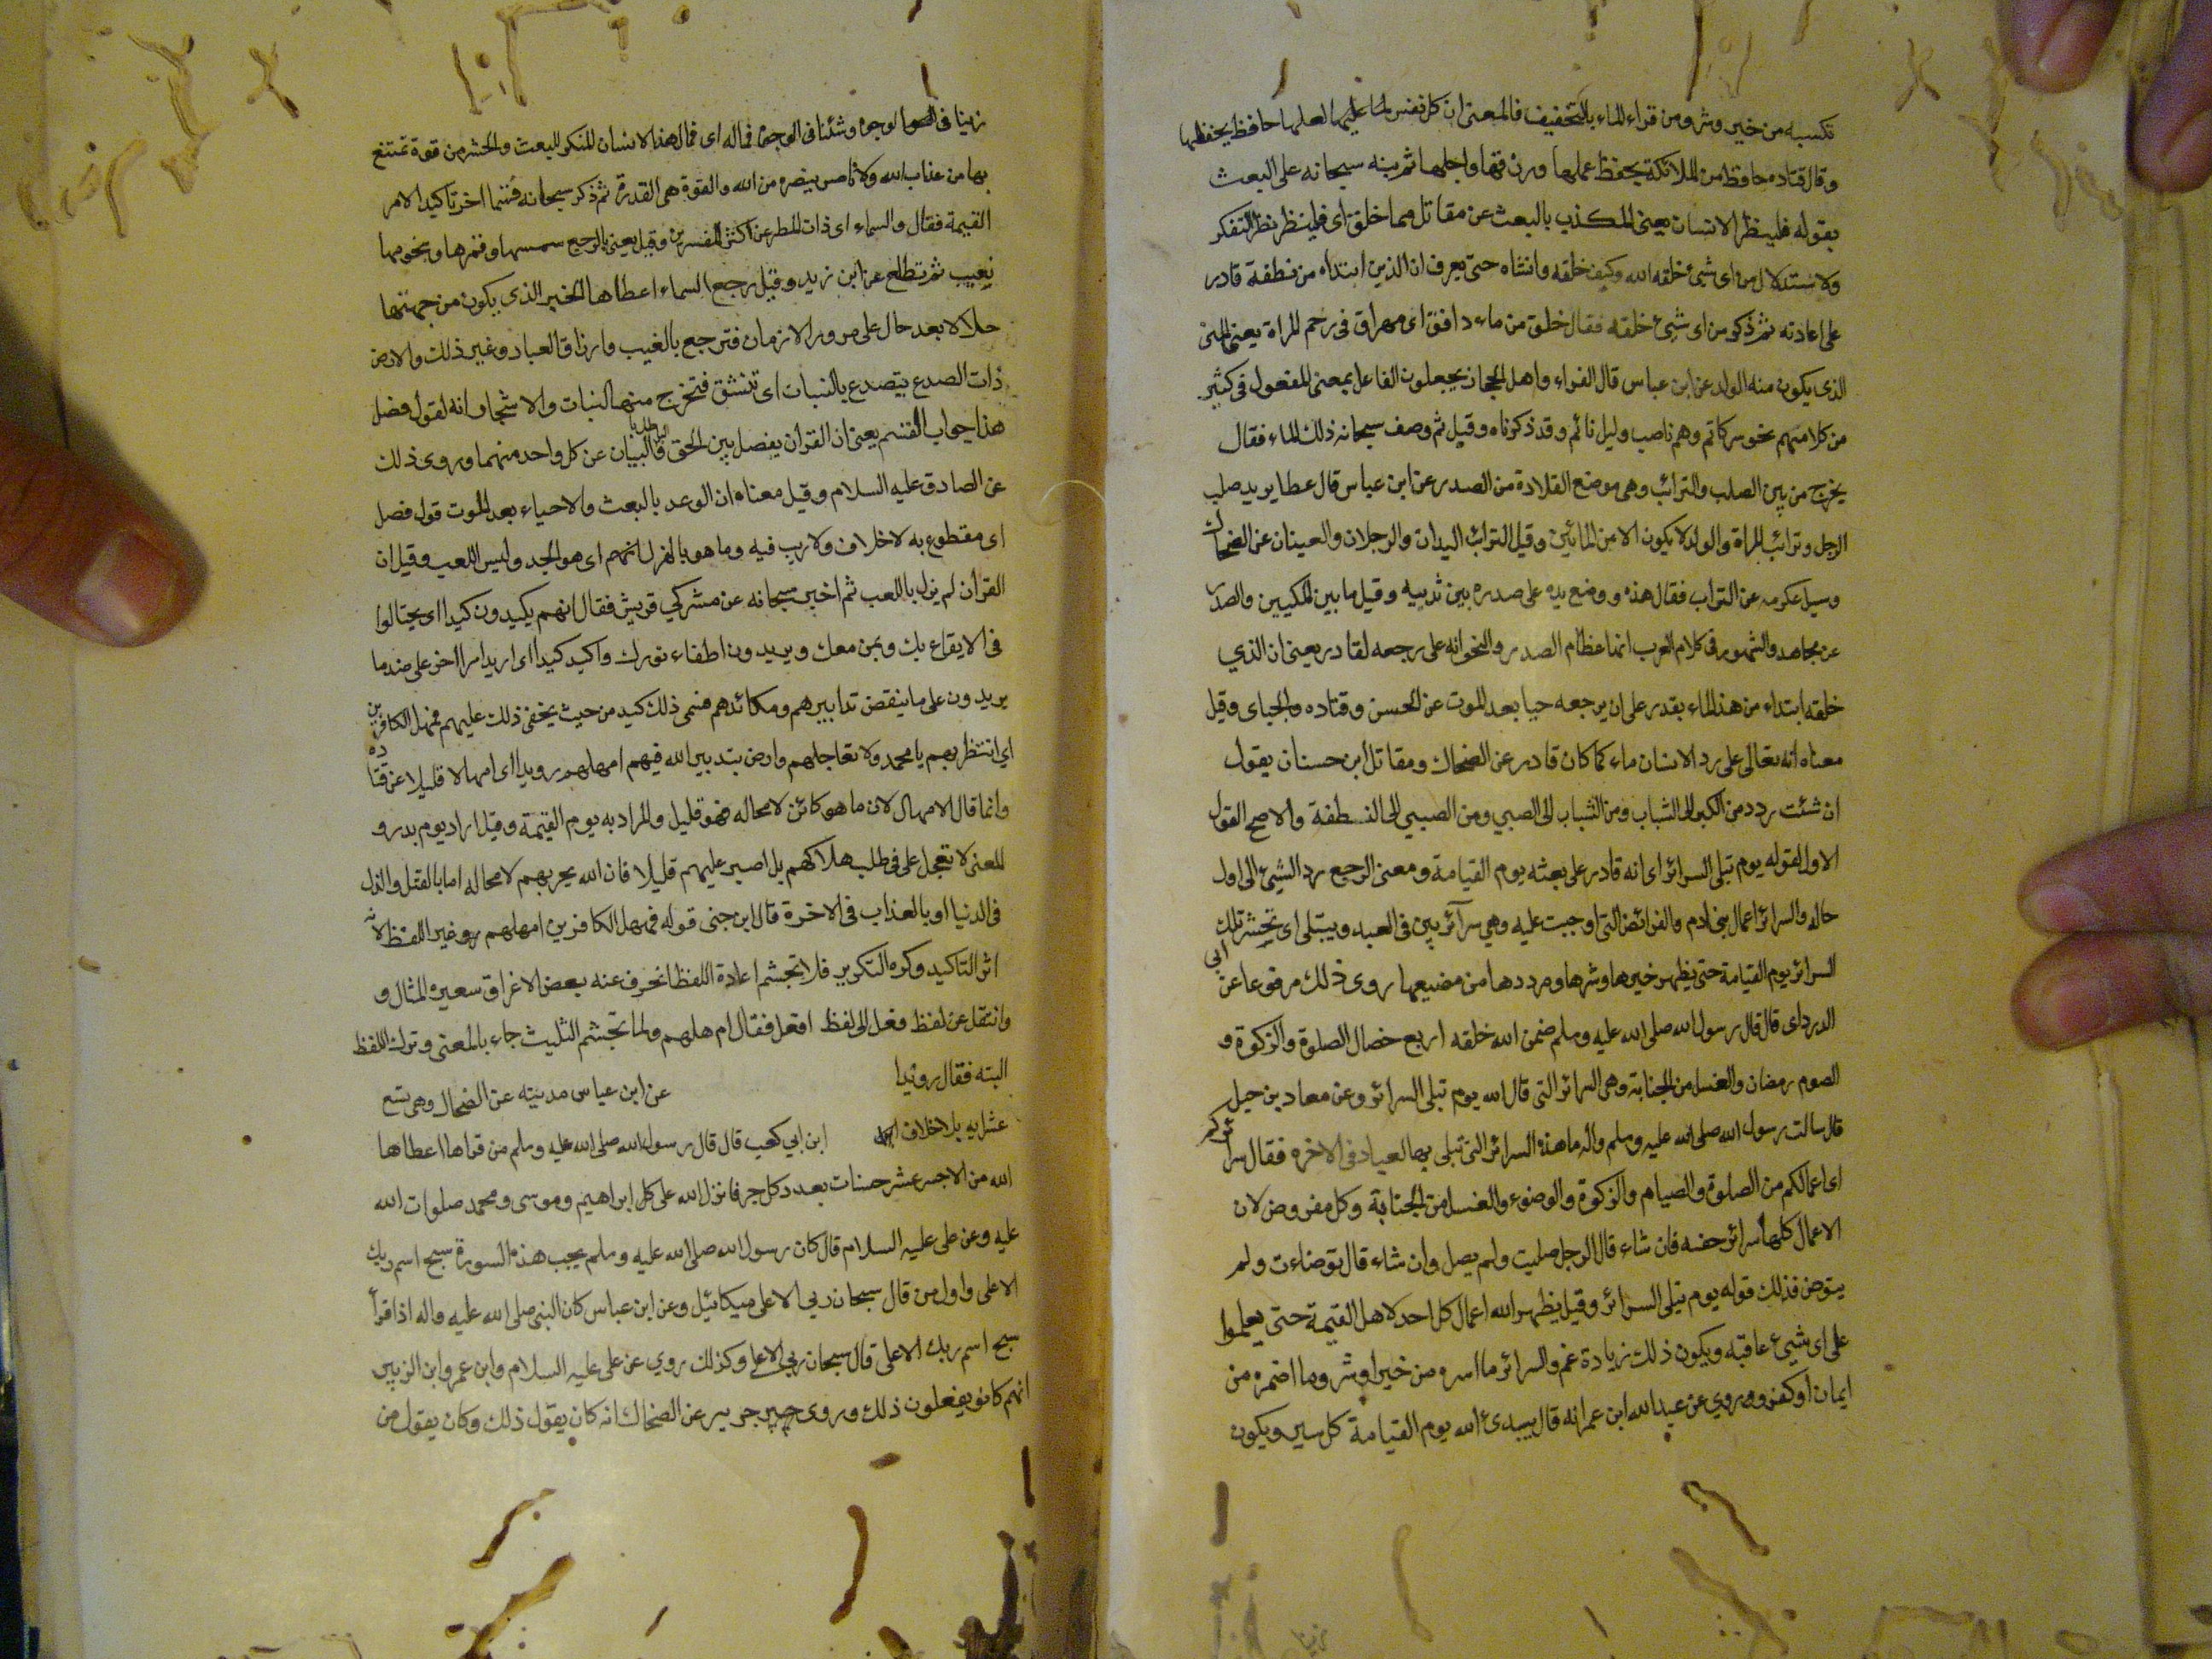 تكسبه من خير وشر ومن قراء لما بالتخفيف فالمعنى ان كل نفس لما عليها لعلمها حافظ يحفظها
وقال قتاده حافظ من الملائكة يحفظ عملها ورزقها واجلها ثم بينه سبحانه على البعث
بقوله فلينظر الانسان يعنى المكذب بالبعث عن مقاتل مما خلق اى فلينظر نظر التفكر
ولاستدلال من اى شئ خلقه الله وكيف خلقه وانشاه حتى يعرف ان الذين ابتداه من نطفة قادر
على اعادته ثم ذكر من اى شئ خلقه فقال خلق من ماء دافق اى مهراق فى رحم المراة يعنى المنى
الذى يكون منه الولد عن ابن عباس قال الفراء واهل الحجاز يجعلون الفاعل بمعنى المفعول فى كثير
من كلامهم نحو سر كاتم وهم ناصب وليل نائم وقد ذكرناه وقيل ثم وصف سبحانه ذلك الماء فقال
يخرج من بين الصلب والترائب وهى موضع القلادة من الصدر عن ابن عباس قال عطا يريد صلب
الرجل وترائب المراة والولد لا يكون الا من المائين وقيل الترائب اليدان والرجلان والعينان عن الضحاك
وسيل عكرمه عن التراب فقال هذه ووضع يده على صدره بين ثدييه وقيل ما بين المكبين والصدر
عن مجاهد والشهور فى كلام العرب انها عظام الصدر والنحو انه على رجعه لقادر يعنى ان الذي
خلقه ابتداء من هذ الماء يقدر على ان يرجعه حيا بعد الموت عن الحسن وقتاده والجباى وقيل
معناه انه تعالى على رد الانسان ماء كما كان قادر عن الضحاك ومقاتل ابن حسنان يقول
ان شئت رددمن الكبر الى الشباب ومن الشباب الى الصبي ومن الصبي الى النطفة والاصح القول
الاول لقوله يوم تبلى السرائر اى انه قادر على بعثه يوم القيامة ومعنى الرجع رد الشيئ الى اول
حاله والسرائر اعمال بنى ادم والفرائض التى اوجبت عليه وهي سرآئر بين فى العبد ويبتلى اى تحشر تلك
السرائر يوم القيامة حتى يظهر خيرها وشرها ومرددها من مضيعها روى ذلك مرفوعا عن ابي
الدرداى قال قال رسول الله صلى الله عليه وسلم ضمن الله خلقه اربع خصال الصلوة والزكوة و
الصوم رمضان والغسل من الجنابة وهى السرائر التى قال الله يوم تبلى السرائر وعن معاد بن جبل
قال سالت رسول الله صلى الله عليه وسلم واله ما هذه السرائر التى تبلى بها العباد فى الاخره فقال سرائركم
اى اعمالكم من الصلوة والصيام والزكوة والوضوء والغسل من الجنابة وكل مفروض لان
الاعمال كلها سرائر حفيه فان شاء قال الرجل صليت ولم يصل وان شاء قال توضاءت ولم
يتوض فذلك قوله يوم تبلى السرائر وقيل يظهر الله اعمال كل احد لاهل القيمة حتى يعلموا
على اى شيئ عاقبه ويكون ذلك زيادة غم والسرائر ما اسره من خير او شر وما اضمره من
ايمان او كفر وروي عن عبد الله ابن عمر انه قال يبدئ الله يوم القيامة كل سر ويكون
زينا فى الوجوه وشئنا فى الوجوه فماله اى فمال هذا الانسان المنكر للبعث والحشر من قوة تمتنع
بها من عذاب الله ولا ناصر ينصره من الله والقوة هى القدرة ثم ذكر سبحانه قسما اخر تاكيدا لامر
القيمة فقال والسماء اى ذات المطر عن اكثر المفسرين وقيل يعنى بالرجع سمسها وقمرها ونجومها
يغيب ثم تطلع عن ابن زيد وقيل رجع السماء اعطاها الخير الذى يكون من جهتها
حلا لا بعد حال على مرور الازمان فترجع بالغيب وارزاق العباد وغير ذلك والارض
ذات الصدع يتصدع بالنبات اى تنشق فتخرج منها النبات والاشجار انه لقول فصل
هذا جواب القسم يعنى ان القران يفصل بين الحق والباطل بالبيان عن كل واحد منهما وروى ذلك
عن الصادق عليه السلام وقيل معناه ان الوعد بالبعث والاحياء بعد الموت قول فصل
اى مقطوع به لاخلاف ولا ريب فيه وما هو بالهزل انهم اى هو الجد وليس اللعب وقيل ان
القران لم ينزل باللعب ثم اخبر سبحانه عن مشركي قريش فقال انهم يكيدون كيدا اى يحتالوا
فى الايقاع بك وبمن معك ويريدون اطفاء نورك واكيد كيدا اى اريد امرا اخر على ضد ما
يريدون على ما ينقض تدابيرهم ومكائدهم فسمى ذلك كيد من حيث يخفى ذلك عليهم فمهل الكافرين
اي انتظر بهم يا محمد ولا تعاجلهم وارض بتدبير الله فيهم امهلهم رويدا اى امهالا قليلا عن قتاده
وانما قال الامهال لان ما هو كائن لا محاله فهو قليل والمراد به يوم القيمة وقيل اراد يوم بدر و
المعنى لا تعجل على فى طلب هلاكهم بل اصبر عليهم قليلا فان الله يجزيهم لا محاله اما بالقتل والذل
فى الدنيا او بالعذاب فى الاخرة قال ابن جنى قوله فمهل الكافرين امهلهم وغير اللفظ لانه
اثر التاكيد وكره التكرير فلا تجشم اعادة اللفظ انحرف عنه بعض الاغراق سعيره المثال و
وانتقل عن لفظ فعل الى لفظ افعل فقال ام هلهم ولما تجشم الثليث جاء بالمعنى وترك اللفظ
البته فقال رويدا عن ابن عباس مدنيته عن الضحاك وهى تسع
عشرايه بلا خلاف ابن ابي كعب قال قال رسول الله صلى الله عليه وسلم من قراها اعطاها
الله من الاجر عشر حسنات بعدد كل حرف انزل الله على كل ابراهيم وموسى ومحمد صلوات الله
عليه وعن على عليه السلام قال كان رسول الله صلى الله عليه وسلم يحب هذه السورة سبح اسم ربك
الاعلى واول من قال سبحان ربي الاعلى ميكائيل وعن ابن عباس كان النبى صلى الله عليه واله اذا قرأ
سبح اسم ربك الاعلى قال سبحان ربي الاعلى وكذلك روي عن على عليه السلام وابن عمر وابن الزبير
انهم كانو يفعلون ذلك وروى جويبر عن الضحاك انه كان يقول ذلك وكان يقول من